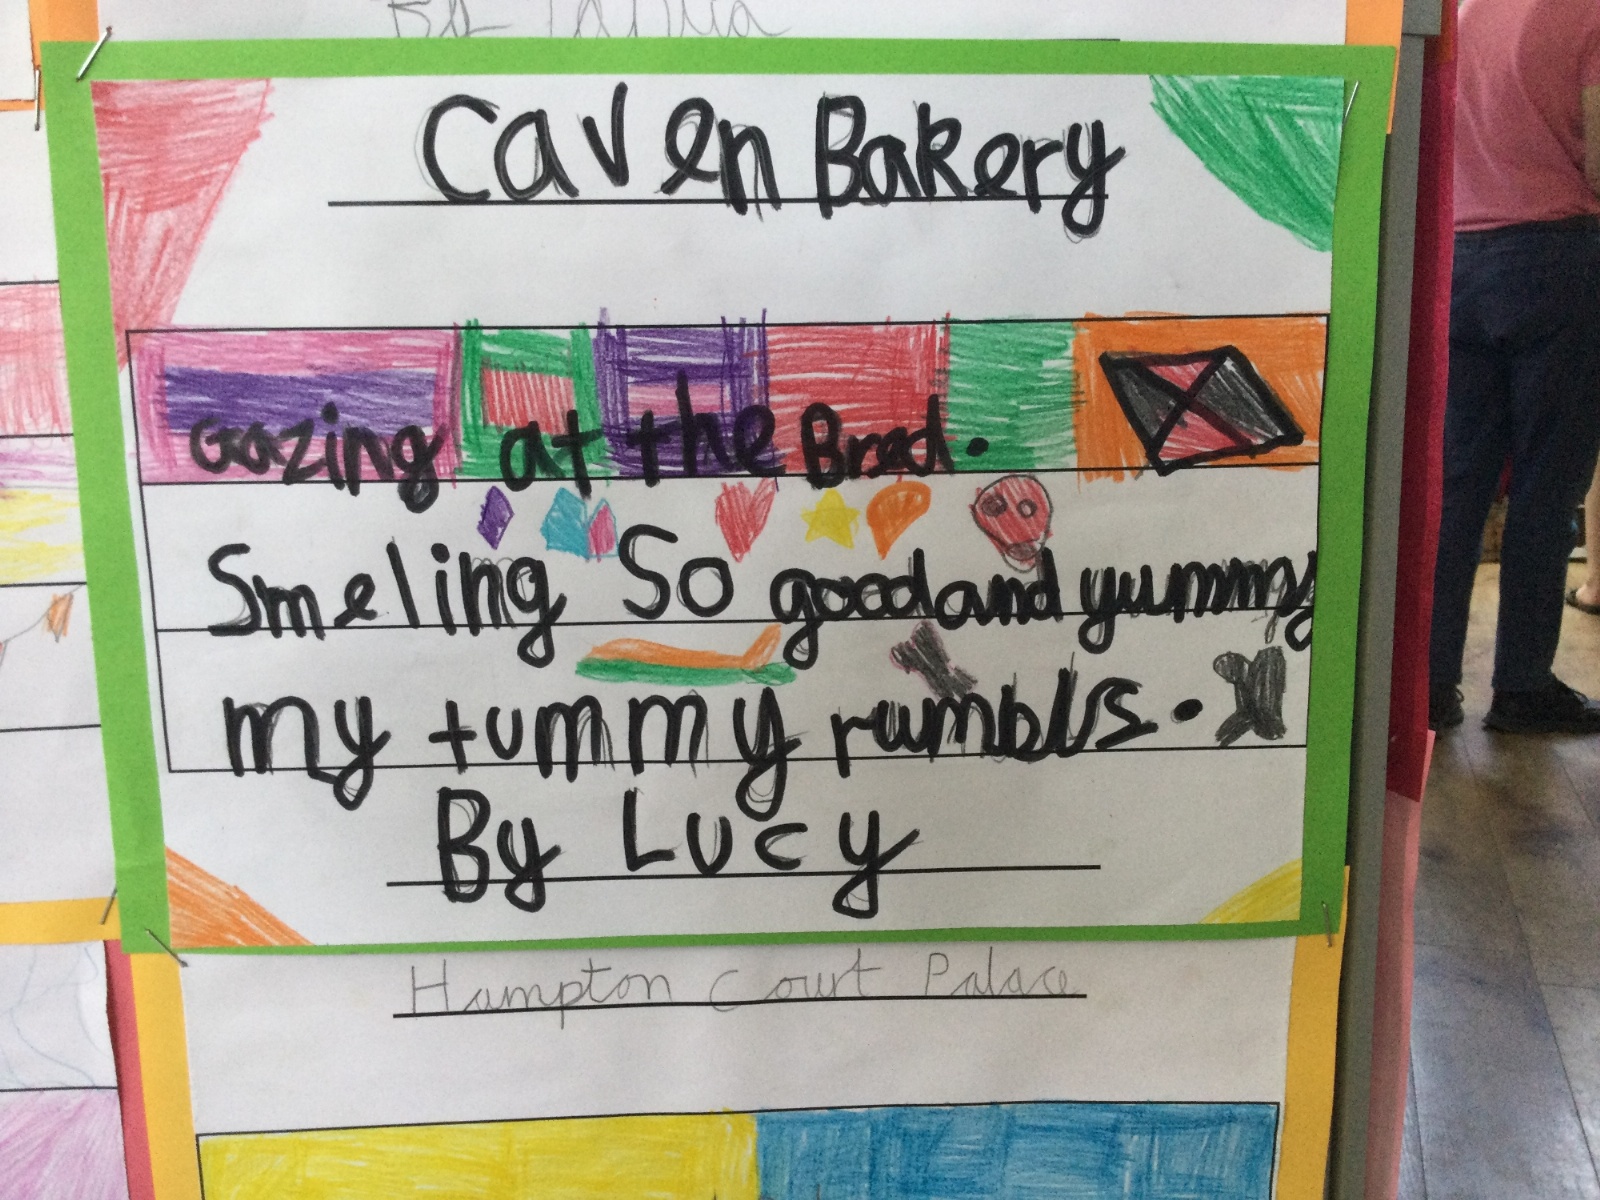 Caven Bakery
Gazing at the Bred.
Smeling So good and yummy
my tummy rumbls.
By Lucy
Hampton Court Palace